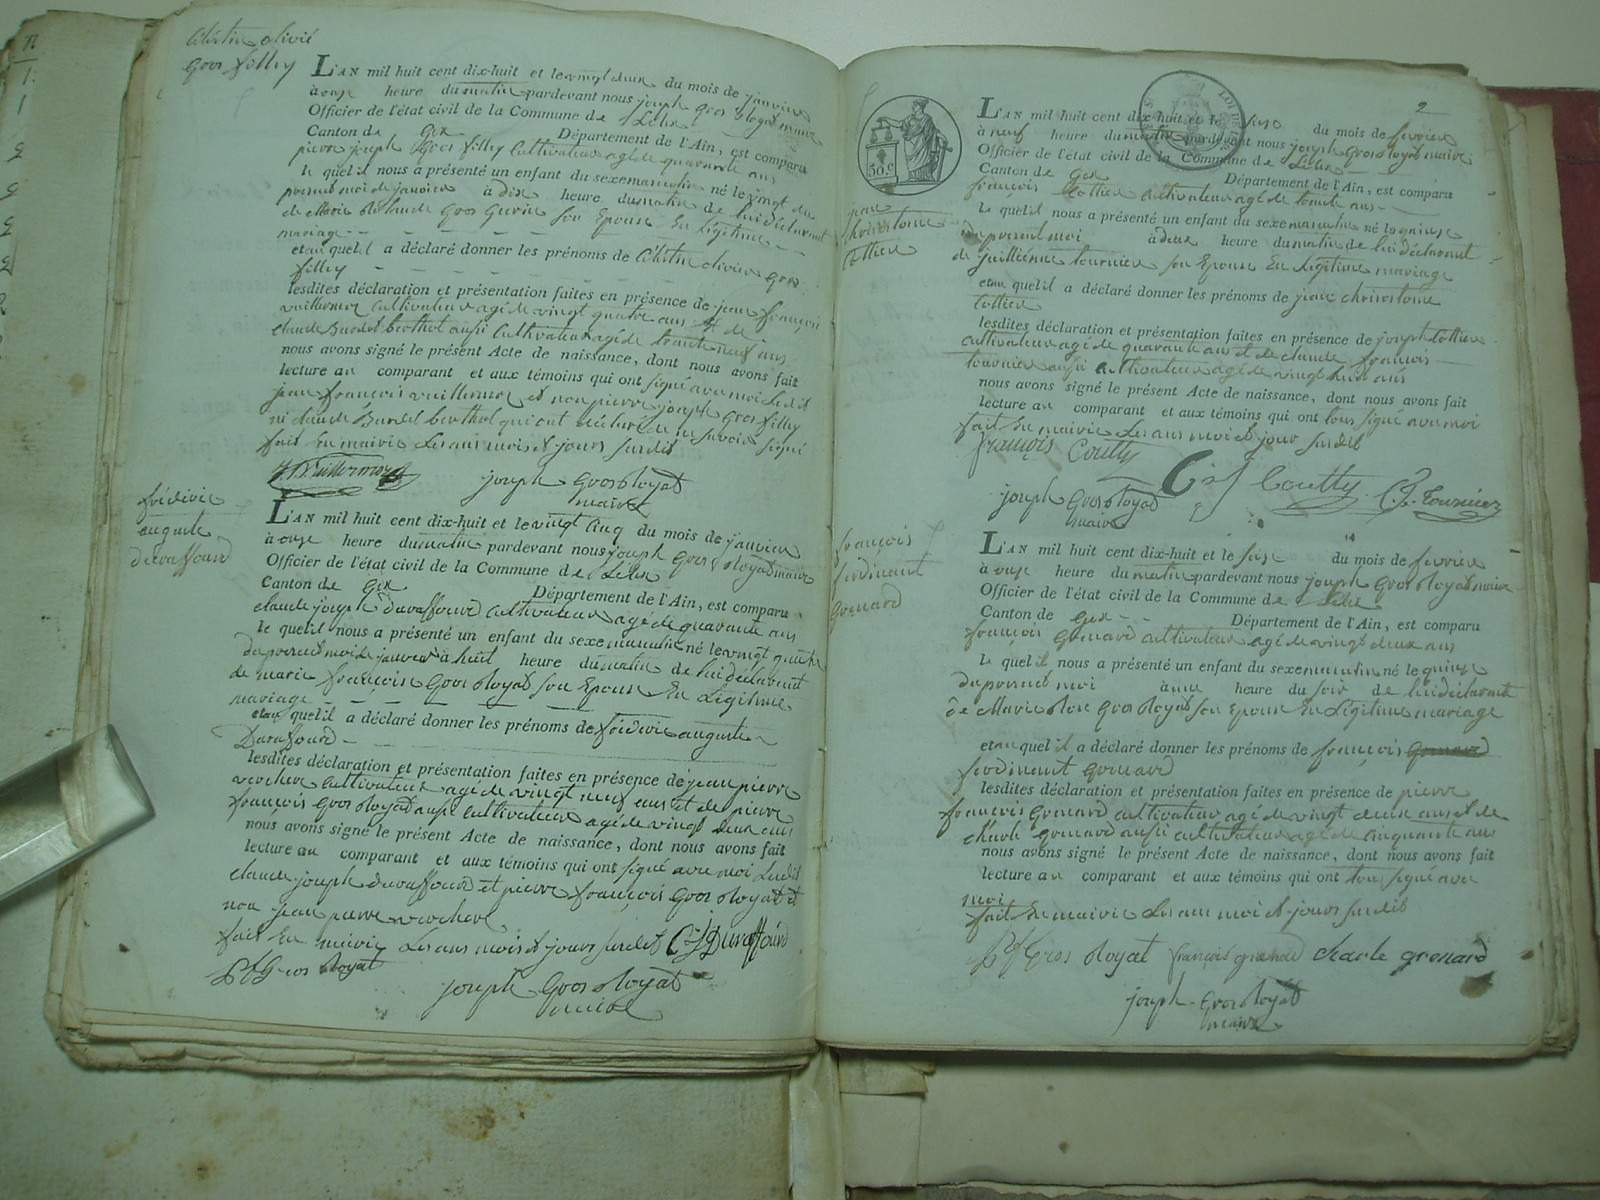 Célestin olivié
Gros filley
L'AN mil huit cent dix-huit et le vingt deux du mois de janvier
à onze heure du matin pardevant nous joseph Gros Royat maire
Officier de l'état civil de la Commune de Lélex
Canton de Gex Département de l'Ain, est comparu
pierre joseph Gros filley Cultivateur agé de quarante ans
le quel il nous a présenté un enfant du sexe masculin né le vingt du
present moi de janvier à dix heure du matin de lui déclarant
de Marie Rolande Gros Gurin son Epouse En Légitime
mariage
et au quel il a déclaré donner les prénoms de Célestin olivier Gros
filley
lesdites déclaration et présentation faites en présence de jean françois
vuillermoz Cultivateur agé de vingt quatre ans et de
claude Burdet berthot aussi Cultivateur agé de trente neuf ans
nous avons signé le présent Acte de naissance, dont nous avons fait
lecture au comparant et aux témoins qui ont signé avec moi Ledit
jean françois vuillermoz et non pierre joseph Gros filley
ni claude Burdet berthot qui ont déclaré ne savoir signé
fait En mairie Les ans mois et jours susdit
joseph Gros Royat
maire
frédéric
auguste
duraffourd
L'AN mil huit cent dix-huit et le vingt cinq du mois de janvier
à onze heure du matin pardevant nous joseph Gros Royat maire
Officier de l'état civil de la Commune de Lélex
Canton de Gex Département de l'Ain, est comparu
claude joseph duraffourd Cultivateur agé de quarante ans
le quel il nous a présenté un enfant du sexe masculin né le vingt quatre
du present moi de janvier à huit heure du matin de lui déclarant
de marie françoise Gros Royat son Epouse En Légitime
mariage
et au quel il a déclaré donner les prénoms de frédéric auguste
Duraffourd
lesdites déclaration et présentation faites en présence de jean pierre
verchere Cultivateur agé de vingt neuf ans et de pierre
françois Gros Royat aussi Cultivateur agé de vingt deux ans
nous avons signé le présent Acte de naissance, dont nous avons fait
lecture au comparant et aux témoins qui ont signé avec moi Ledit
claude joseph duraffourd et pierre françois Gros Royat et
non jean pierre verchere
fait En mairie Les ans mois et jours susdit CJ Duraffourd
pf Gros Royat
joseph Gros Royat
maire
2
50 c
L'AN mil huit cent dix-huit et le du mois de fevrier
à neuf heure du matin pardevant nous joseph Gros Royat maire
Officier de l'état civil de la Commune de Lélex
Canton de Gex Département de l'Ain, est comparu
françois Cottier Cultivateur agé de trente ans
le quel il nous a présenté un enfant du sexe masculin né le quinze
du present moi à deux heure du matin de lui déclarant
de juillienne tournier son Epouse En Légitime mariage
et au quel il a déclaré donner les prénoms de jean chrisostome
Cottier
jean
chrisostome
Cottier
lesdites déclaration et présentation faites en présence de joseph Cottier
cultivateur agé de quarante ans et de claude françois
tournier aussi cultivateur agé de vingt huit ans
nous avons signé le présent Acte de naissance, dont nous avons fait
lecture au comparant et aux témoins qui ont tous signé avec moi
fait En mairie Les ans moi et jour susdit
françois Coutty
joseph Gros Royat
maire
Coutty C. f. Tournier
françois
ferdinant
Grenard
L'AN mil huit cent dix-huit et le seize du mois de fevrier
à onze heure du matin pardevant nous joseph Gros Royat maire
Officier de l'état civil de la Commune de Lélex
Canton de Gex Département de l'Ain, est comparu
françois Grenard cultivateur agé de vingt deux ans
le quel il nous a présenté un enfant du sexe masculin né le quinze
du present moi à une heure du soir de lui déclarant
de Marie Rose Gros Royat son Epouse En Légitime mariage
et au quel il a déclaré donner les prénoms de françois Grenard
ferdinant Grenard
lesdites déclaration et présentation faites en présence de pierre
françois Grenard cultivateur agé de vingt deux ans et de
charle Grenard aussi cultivateur agé de cinquante ans
nous avons signé le présent Acte de naissance, dont nous avons fait
lecture au comparant et aux témoins qui ont tous signé avec
moi
fait En mairie Les ans moi et jours susdit
pf Gros Royat françois grenard charle grenard
joseph Gros Royat
maire